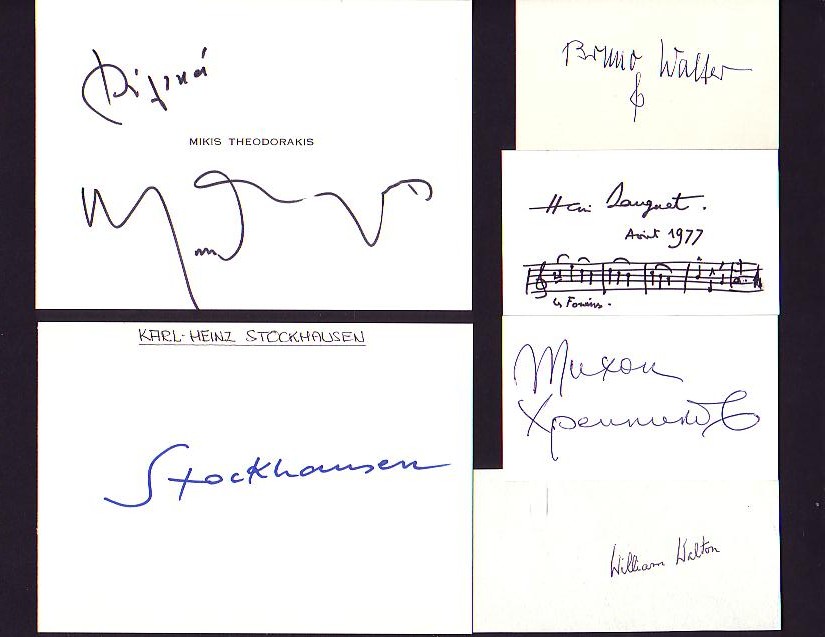 Φιλικά
MIKIS THEODORAKIS
KARL-HEINZ STOCKHAUSEN
Stockhausen
Bruno Walter
Henri Sauguet.
Août 1977
Les Forains.
Тихон
Хренников
William Walton